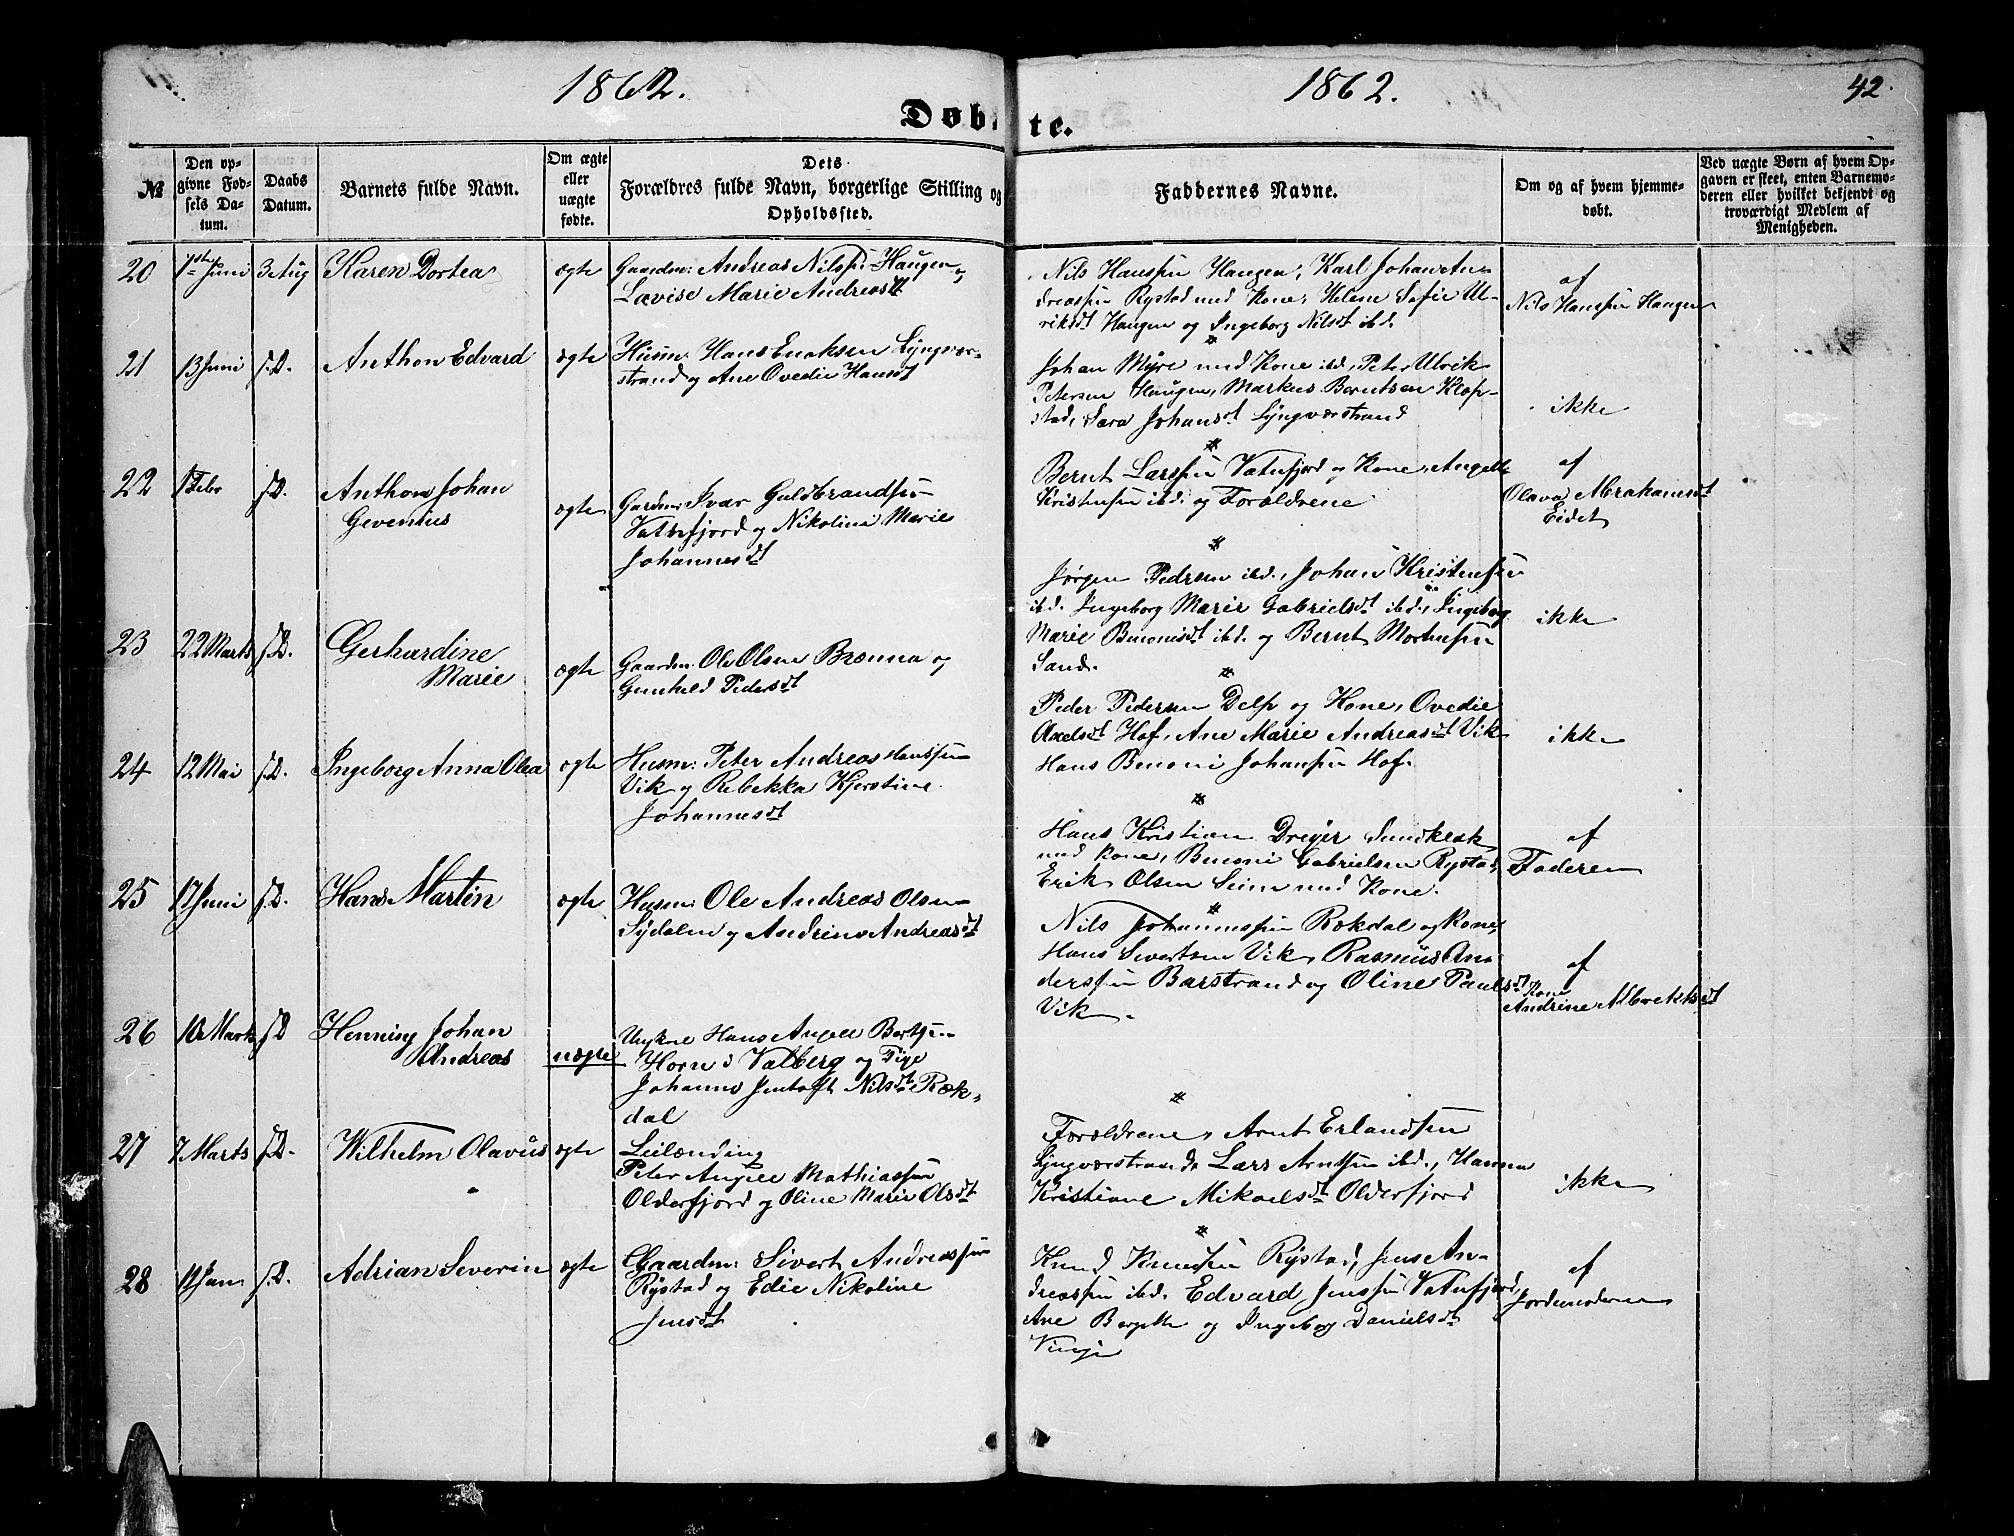 1862.
1862.
42.
Døbte.
№
Den op-
givne Fød-
sels Da-
tum.
Daabs
Datum.
Barnets fulde Navn.
Om ægte
eller
uægte
fødte.
Dets
Forældres fulde Navn, borgerlige Stilling og
Opholdssted.
Faddernes Navne.
Om og af hvem hjemme-
døbt.
Ved uægte Børn af hvem Op-
gaven er skeet, enten Barnemo-
deren eller hvilket bekjendt og
troværdigt Medlem af
Menigheden.
20 1ste Juni 3 Aug Karen Dortea ægte Gaardm: Andreas Nilssen Haugen og
Lovise Marie Andreasdt
Nils Hanssen Haugen, Karl Johan An-
dreassen Rystad med Kone, Helene Sofie Ul-
riksdt Haugen og Ingeborg Nilsdt ibd.
af
Nils Hanssen Haugen
21 13 Juni s.D. Anthon Edvard ægte Husm: Hans Enoksen Lyngvær-
strand og Ane Ovedie Hansdt
Johan Myre med Kone ibd, Peter Ulrik
Petersen Haugen, Markus Berntsen Klop-
stad, Sara Johansdt Lyngværstrand
ikke
22 1 Febr s.D. Anthon Johan
Gevenius
ægte Gardm: Ivar Guldbrandsen
Vatnfjord og Nikoline Marie
Johannesdt
Bernt Larssen Vatnfjord og Kone, Angell
Kristensen ibd. og Forældrene
af
Olava Abrahamsdt
Eidet
23 22 Marts s.D. Gerhardine
Marie
ægte Gaardm: Ole Olsen Brenna og
Gunhild Pedersdt
Jørgen Pedersen ibd., Johan Kristensen
ibd. Ingeborg Marie Gabrielsdt ibd., Ingeborg
Marie Benonisdt ibd. og Bernt Mortensen
Sand.
ikke
24 12 Mai s.D. Ingeborg Anna Olea ægte Husm: Peter Andreas Hanssen
Vik og Rebekka Kjerstine
Johannesdt
Peder Pedersen Delp og Kone, Ovedie
Axelsdt Hof, Ane Marie Andreasdt Vik
Hans Benoni Johansen Hof.
ikke
25 17 Juni s.D. Hans Martin ægte Husm: Ole Andreas Olsen
Sydalen og Andrine Andreasdt
Hans Kristian Dreyer Sundklak
med Kone, Benoni Gabrielsen Rystad,
Erik Olsen Seine med Kone.
af
Faderen
26 10 Marts s.D Henning Johan
Andreas
uægte Ungkarl Hans Angell Bertsen
Horn i Valberg og Pige
Johanna Jentoft Nilsdt Røk-
dal
Nils Johannessen Røkdal og Kone,
Hans Sivertsen Vik, Rasmus An-
derssen Barstrand og Oline Paulsdt
Vik.
af
Kone
Andrine Albrektsdt
27 7 Marts s.D. Wilhelm Olavus ægte Leilænding
Peter Angell Mathiassen
Olderfjord og Oline Marie Olsdt
Forældrene, Arnt Erlandsen
Lyngværstrand, Lars Arntsen ibd., Hanna
Kristiane Mikaelsdt Olderfjord
ikke
28 Jan. s.D. Adrian Severin ægte Gaardm: Sivert Andreassen
Rystad og Edie Nikoline
Jensdt
Knud Knudsen Rystad, Jens An-
dreassen ibd. Edvard Jenssen Vatnfjord,
Ane Bergitte og Ingeborg Danielsdt
Vinje
af
Jordemoderen